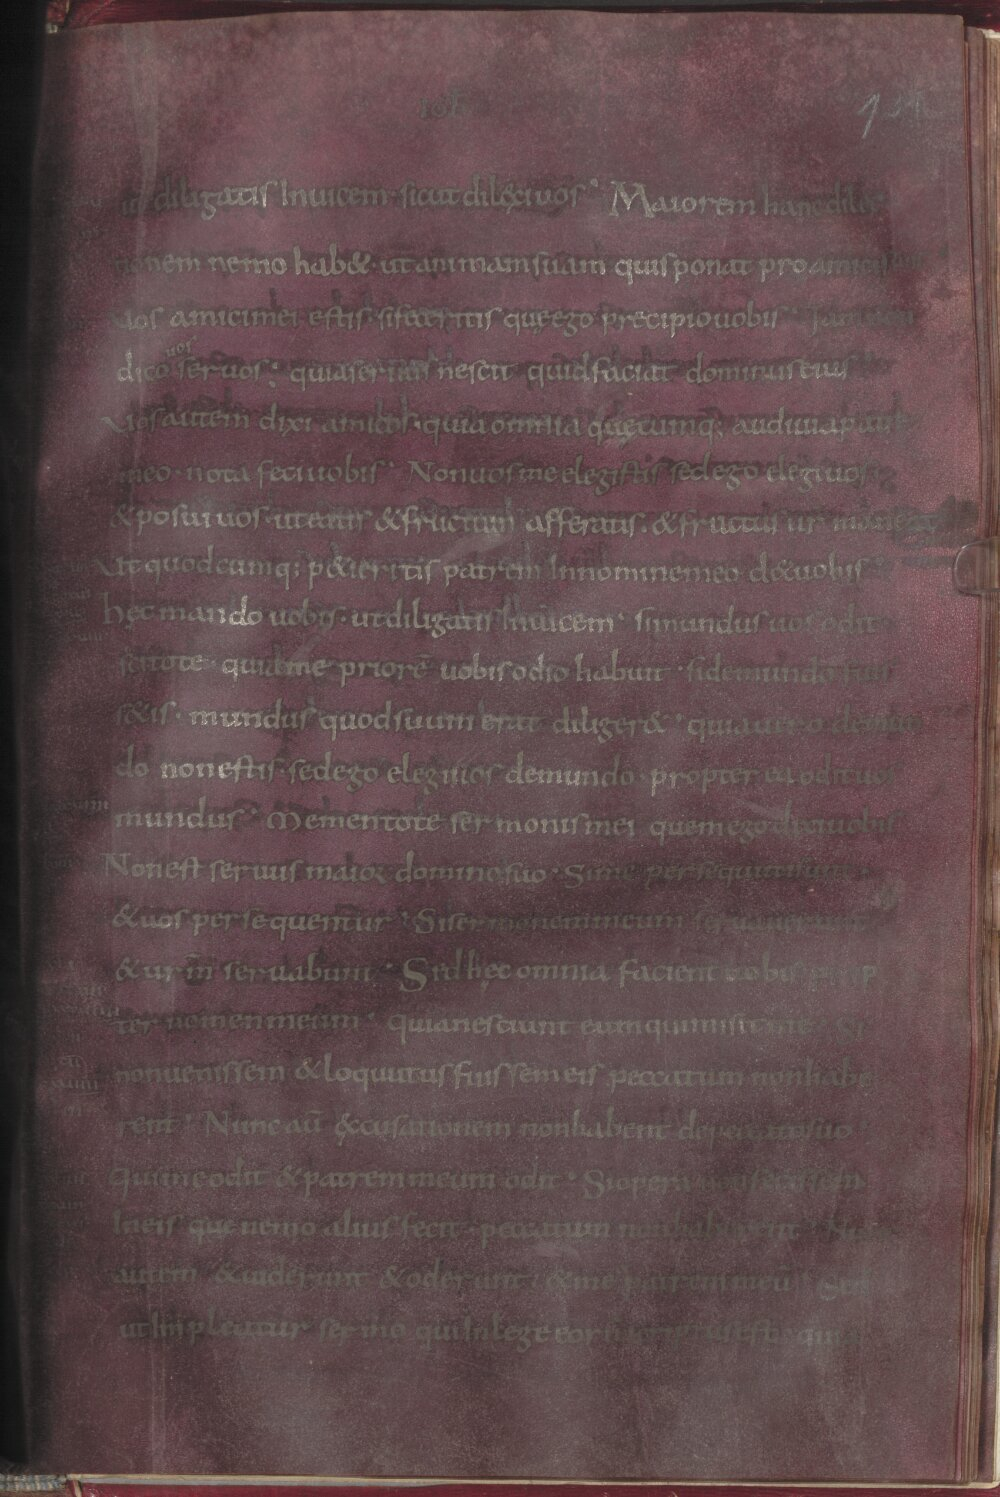 ut diligatis Inuicem · sicut dilexi uos · Maiorem hanc dilec
tionem nemo hab& · ut animam suam quis ponat pro amicis
uos amici mei estis · si feceritis quę ego precipio uobis · Iam non
dico uos seruos · quia seruus nescit quid faciat dominus eius
Uos autem dixi amicos · quia omnia quęcumq; audiui a patre
meo · nota feci uobis · Non uos me elegistis sed ego elegi uos
& posui uos · ut eatis & fructum afferatis . & fructus ur maneat
Ut quodcumq; p&ieritis patrem In nomine meo d& uobis
hęc mando uobis · ut diligatis Inuicem · si mundus uos odit
scitote · quia me priorē uobis odio habuit · si de mundo fuis
s&is · mundus quod suum erat diliger& · quia uero de mun
do non estis · sed ego elegi uos de mundo · propter ea odit uos
mundus · Mementote sermonis mei quem ego dixi uobis
Non est seruus maior domino suo · Si me persequuti sunt
& uos persequentur · Si sermonem meum seruauerunt
& urm seruabunt · Sed hęc omnia facient uobis prop
ter nomen meum · quia nesciunt eum qui misit me · Si
non uenissem & loquutus fuissem eis peccatum non habe
rent · Nunc aū excusationem non habent de peccato suo
Qui me odit & patrem meum odit · Si opera non fecissem
In eis que nemo alius fecit · peccatum non haberent · Nunc
autem & uiderunt & oderunt · & me & patrem meū · Sed
ut Impleatur sermo qui In lege eorū scriptus est · quia